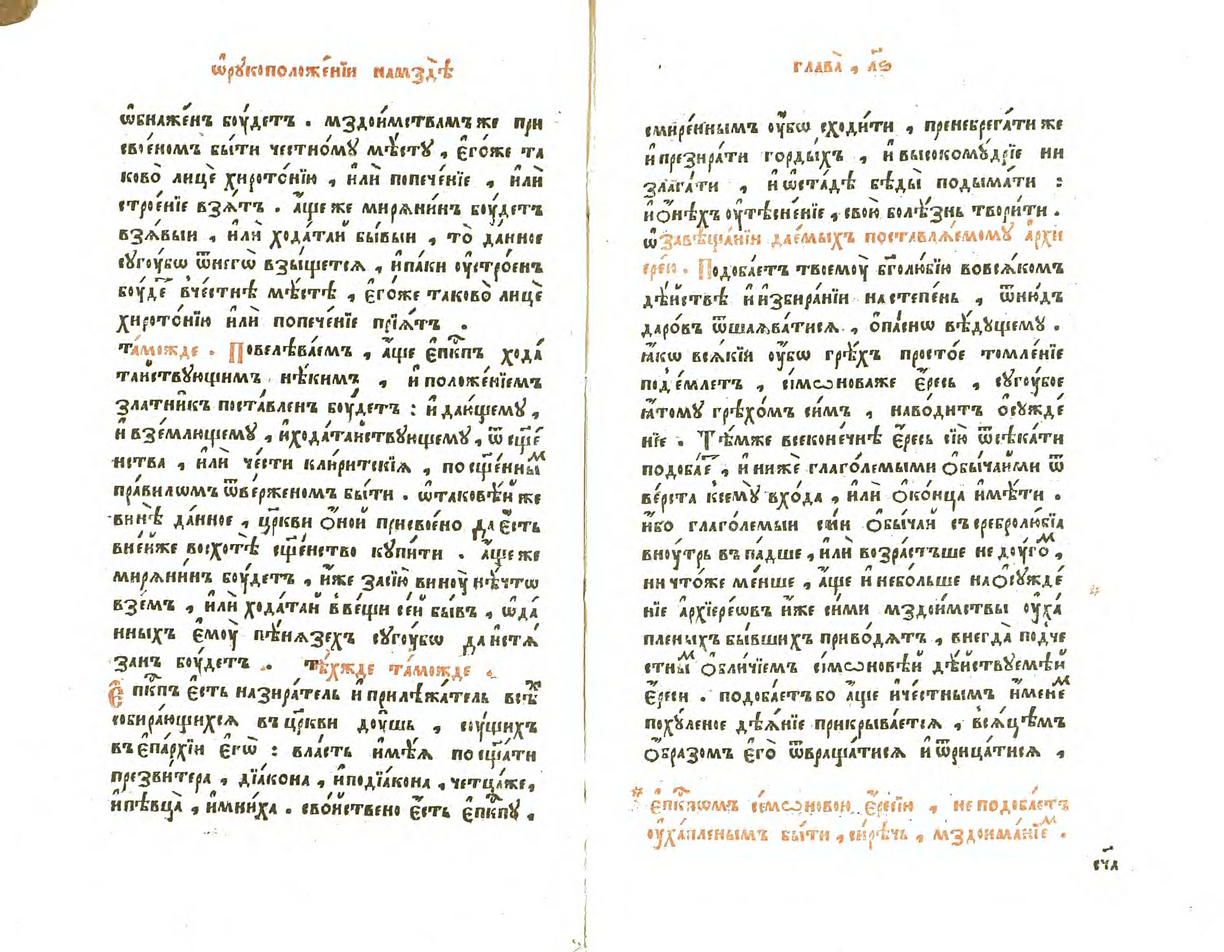 ѡ҆рꙋкоположе́нїи намздѣ̀
ѡ҆бнаже́нъ боу́детъ . мздои́мствамъже при
своеномъ бы́ти честно́мꙋ мѣ́стꙋ , є҆го́же та
ково̀ лицѐ хирото́нїю , и҆лѝ попече́нїе , и҆лѝ
строе́нїе взѧ́тъ . а҆́ще же мирѧ́нинъ боу́детъ
взѧ́выи , и҆лѝ хода́таи бы́выи , то̀ да́нное
сꙋгоу́бѡ ѿнегѡ̀ взы́щетсѧ , и҆па́ки оу҆стро́енъ
боу́де вче́стнѣ мѣ́стѣ , є҆го́же таково̀ лицѐ
хирото́нїю и҆лѝ попече́нїе прїѧ́тъ .
та́можде . Повелѣва́емъ , а҆́ще є҆пⷭ҇кпъ хода́
та́йствꙋющимъ нѣ́кимъ , и҆ положе́нїемъ
зла́тникъ поста́вленъ боу́детъ : и҆ даю́щемꙋ ,
и҆ взе́млющемꙋ , и҆хода́тайствꙋющемꙋ , ѿ сщ҃е́
нства , и҆лѝ че́сти кли́ритскїѧ , по сщ҃е́нныⷨ
пра́вилѡмъ ѿве́рженомъ бы́ти . ѡ҆таковѣ́й же
винѣ̀ да́нное , цр҃кви ѻ҆́ной присвое́но да є҆́сть
вне́йже восхотѣ̀ сщ҃е́нство кꙋпи́ти . а҆́ще же
мирѧ́нинъ боу́детъ , и҆́же засїю̀ виноу̀ нѣ́чтѡ
взе́мъ , и҆лѝ хода́тай вве́щи се́й бы́въ , ѡ҆да́
нныхъ є҆моу̀ пѣ́нѧзехъ сꙋгоу́бѡ да и҆стѧ́
занъ боу́детъ . тѣ́хжде та́можде .
Є҆пⷭ҇кпъ є҆́сть назира́тель и҆ прилѣжа́тель всѣⷯ
собира́ющихсѧ въ цр҃кви доу́шь , соу́щихъ
въ є҆па́рхїи є҆гѡ̀ : вла́сть и҆мѣ́ѧ по сщ҃а́ти
презви́тера , дїа́кона , и҆подїа́кона , четца́же ,
и҆ пѣвца̀ , и҆мни́ха . сво́йствено є҆́сть є҆пⷭ҇кпꙋ ,
глава̀ , л҃ѕ
смире́ннымъ оу҆́бѡ сходи́ти , пренебрега́ти же
и҆ презира́ти го́рдыхъ , и҆ высокомꙋ́дрїе ни
злага́ти , и҆ ѡ҆ста́дѣ бѣды̀ подыма́ти :
и҆ ѻ҆́нѣхъ оу҆тѣсне́нїе , свою̀ болѣ́знь твори́ти .
ѡ҆завѣща́нїи дае́мыхъ поставлѧ́емомꙋ а҆рхи
ере́ю . Подоба́етъ твоемоу̀ бг҃олю́бїю вовсѧ́комъ
дѣ́йствѣ и҆ и҆збира́нїи на сте́пень , ѿню́дъ
даро́въ ѿшаѧва́тисѧ , ѻ҆па́снѡ вѣ́дꙋщемꙋ .
ꙗ҆́кѡ всѧ́кїй оу҆́бѡ грѣ́хъ просто́е томле́нїе
под̾е́млетъ , сі́мѡноваже є҆́ресь , сꙋгоу́бое
ꙗ҆́томꙋ грѣхо́мъ си́мъ , наво́дитъ ѻ҆сꙋжде́
нїе . Тѣ́мже всеконе́чнѣ є҆́ресь сїю̀ ѿсѣка́ти
подоба́е , и҆ нижѐ глаго́лемыми ѻ҆бы́чайми ѿ
ве́рста ксемꙋ̀ вхо́да , и҆лѝ ѻ҆ко́нца и҆мѣ́ти .
и҆́бо глаго́лемыи сі́и ѻ҆бы́чай съ сребролю́бїа
вноу́трь въ па́дше , и҆лѝ возра́стъше не доу́гоⷨ ,
ни что́же ме́нше , а҆́ще и҆ небо́льше на ѻ҆сꙋжде́
нїе а҆рхїере́ѡвъ и҆́же си́ми мздои́мствы оу҆ха́
пленыхъ бы́вшихъ приво́дѧтъ , внегда̀ подче
стныⷨ ѻ҆бли́чїемъ сі́мѡновѣй дѣ́йствꙋемѣй
є҆́реси . подоба́етъ бо а҆́ще и҆че́стнымъ и҆́менеⷨ
поху́леное дѣѧ́нїе прикрыва́етсѧ , всѧ́цѣмъ
ѻ҆́бразомъ є҆го̀ ѿвраща́тисѧ и҆ ѿрица́тисѧ ,
* є҆пⷭ҇кпѡмъ се́мѡновою є҆́ресїю , не подоба́етъ
оу҆ха́пленымъ бы́ти , си́рѣчь , мздоима́нїеⷨ .
сч҃л